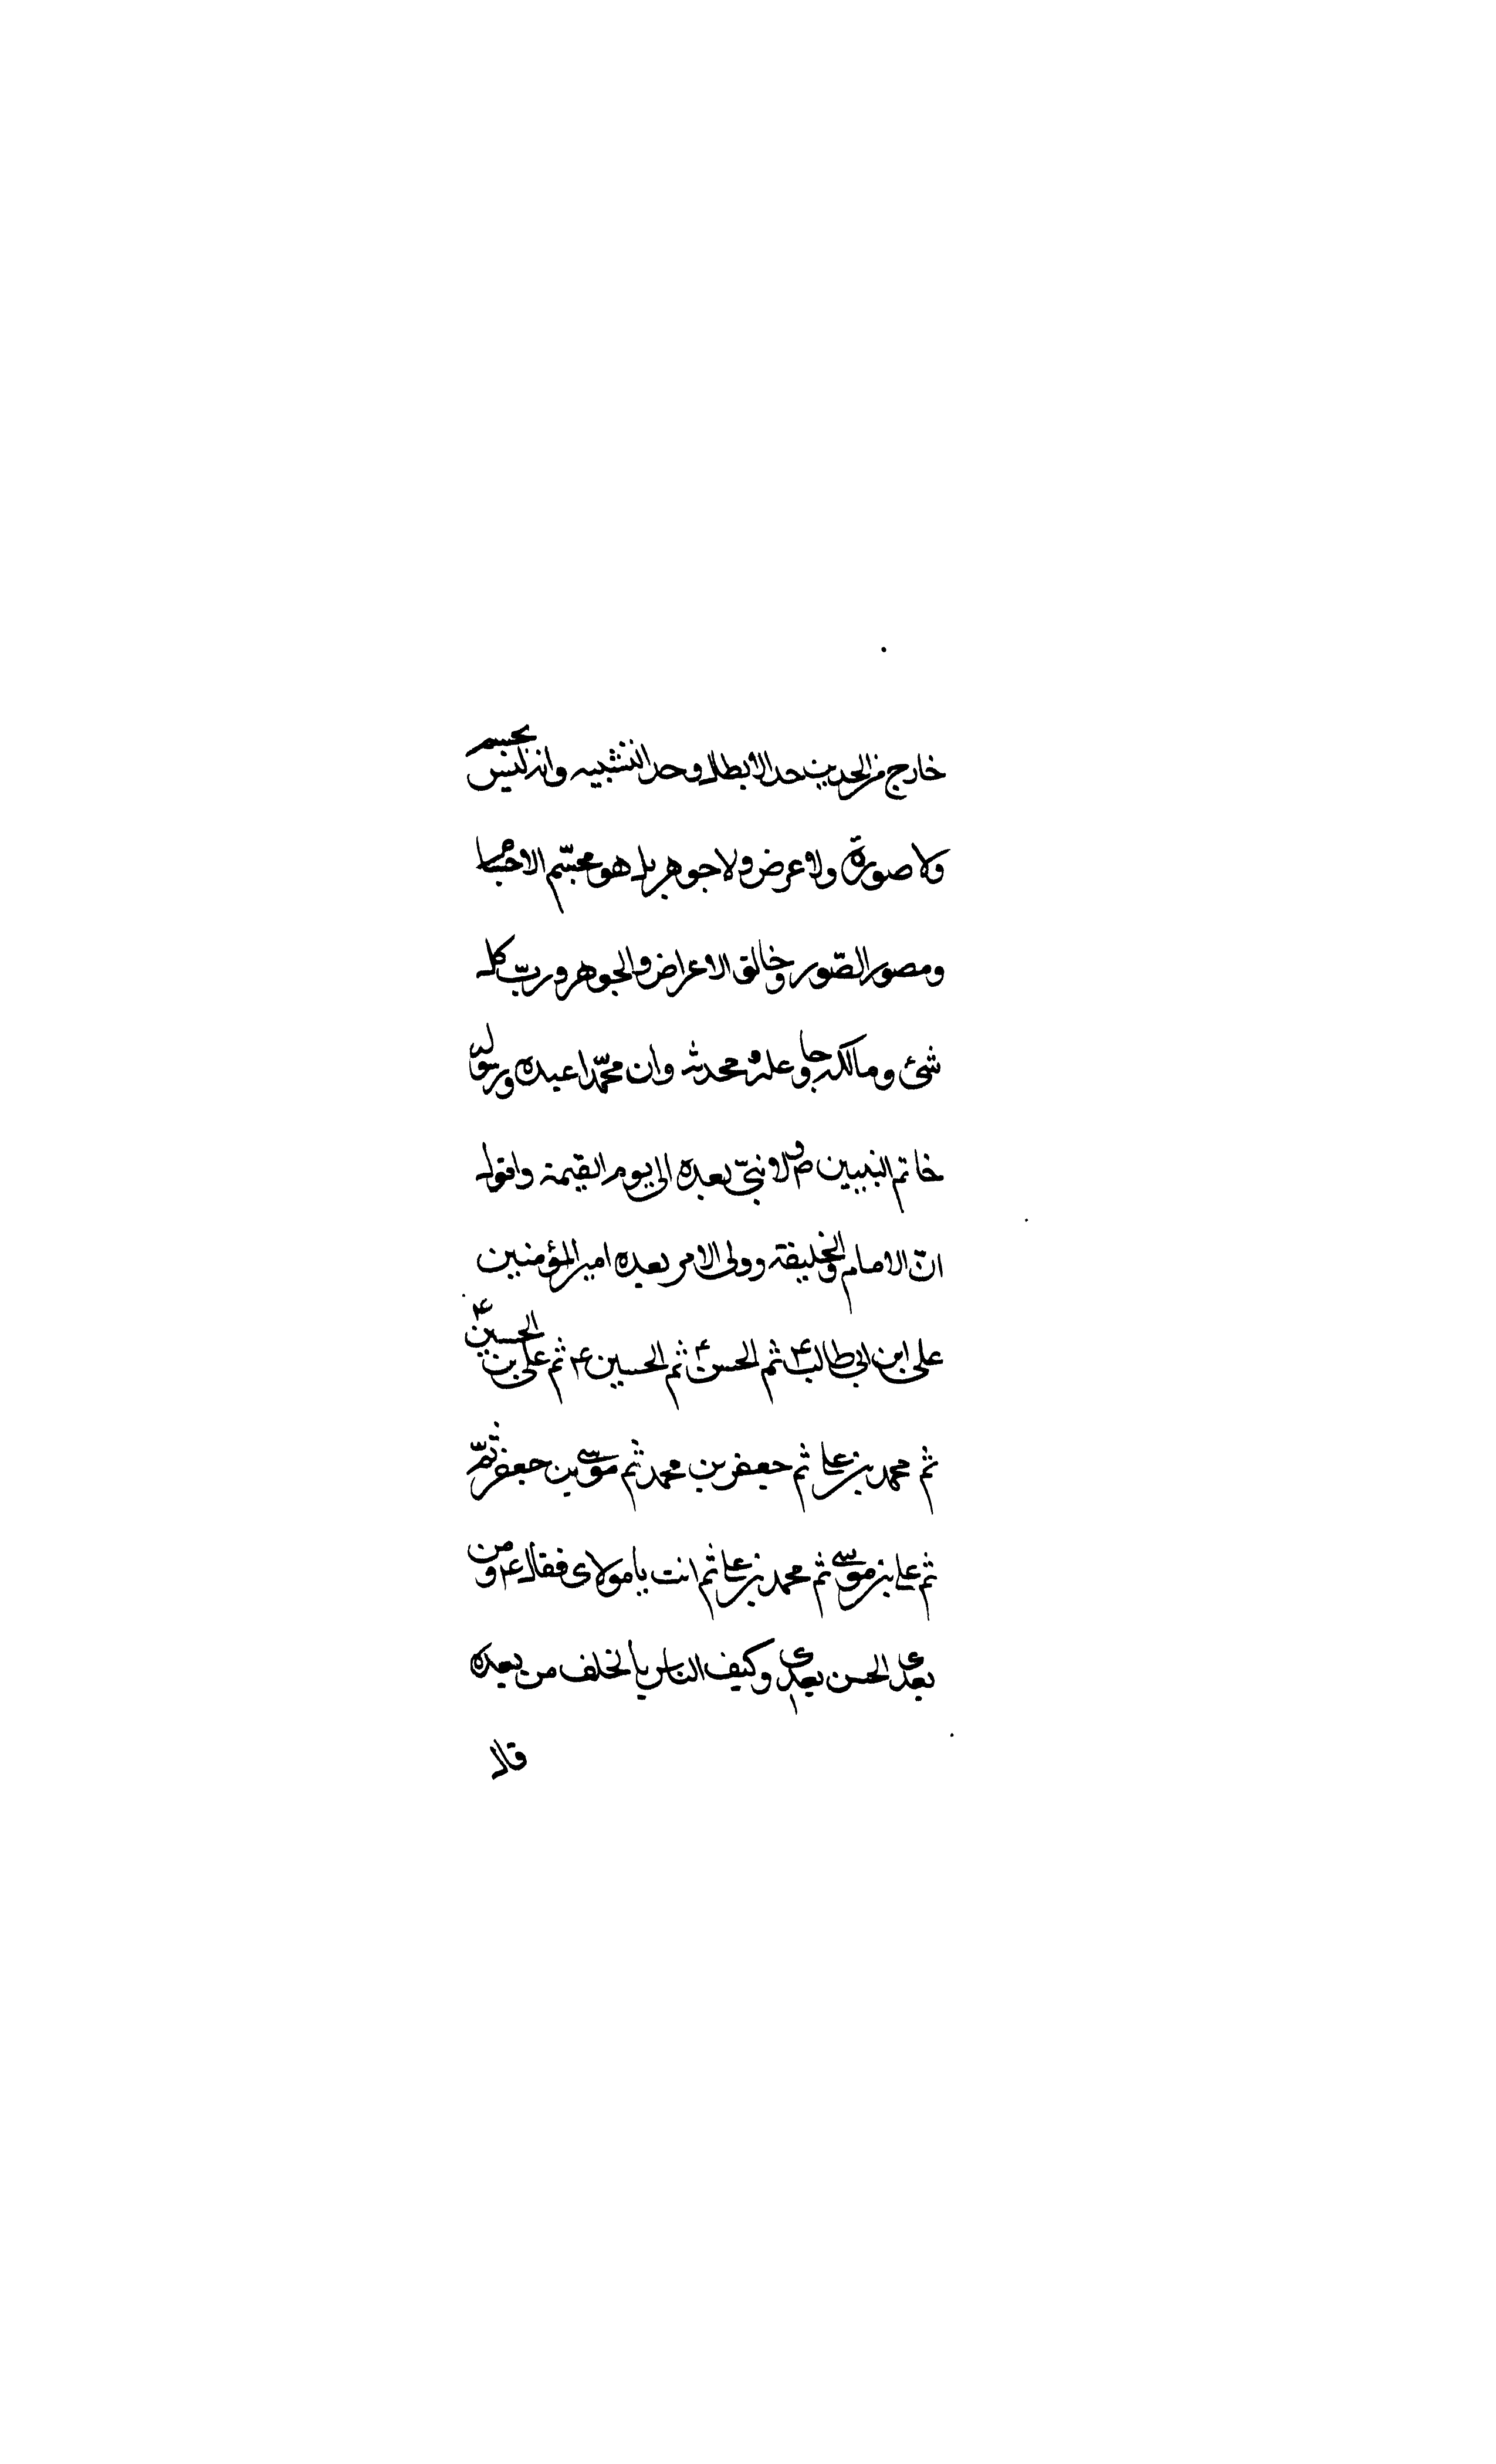 خارج من الحدين حد الابطال وحد التشبيه وانه ليس بجسم
ولا صورة ولا عرض ولا جوهر بل هو مجسّم الاجسام
ومصور الصّور وخالق الاعراض والجوهر وربّ كل
شئ ومالكه وجاعله ومحدثه وان محمّدا عبده ورسوله
خاتم النبيين ص ولا نبيّ بعده الى يوم القيمة واقول
انّ الامام والخليفة وولى الامر بعده امير المؤمنين
على ابن ابى طالب ع ثم الحسن ع ثم الحسين ع ثم على بن الحسين ع
ثم محمد بن على ثم جعفر بن محمد ثم موسى بن جعفر ثمّ
ثم على بن موسى ثم محمد بن على ثم انت يا مولاى فقال ع ومن
بعدى الحسن بعدى وكيف الناس بالخلف من بعده
قال